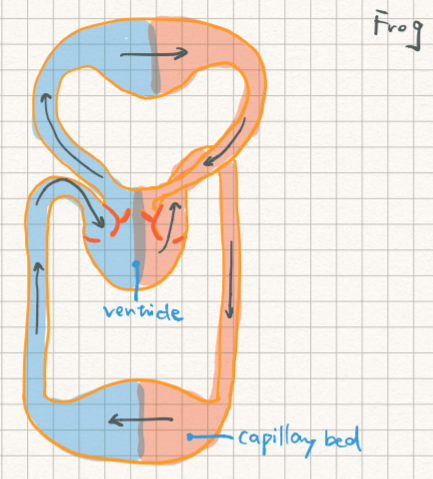 Frog
ventricle
capillary bed